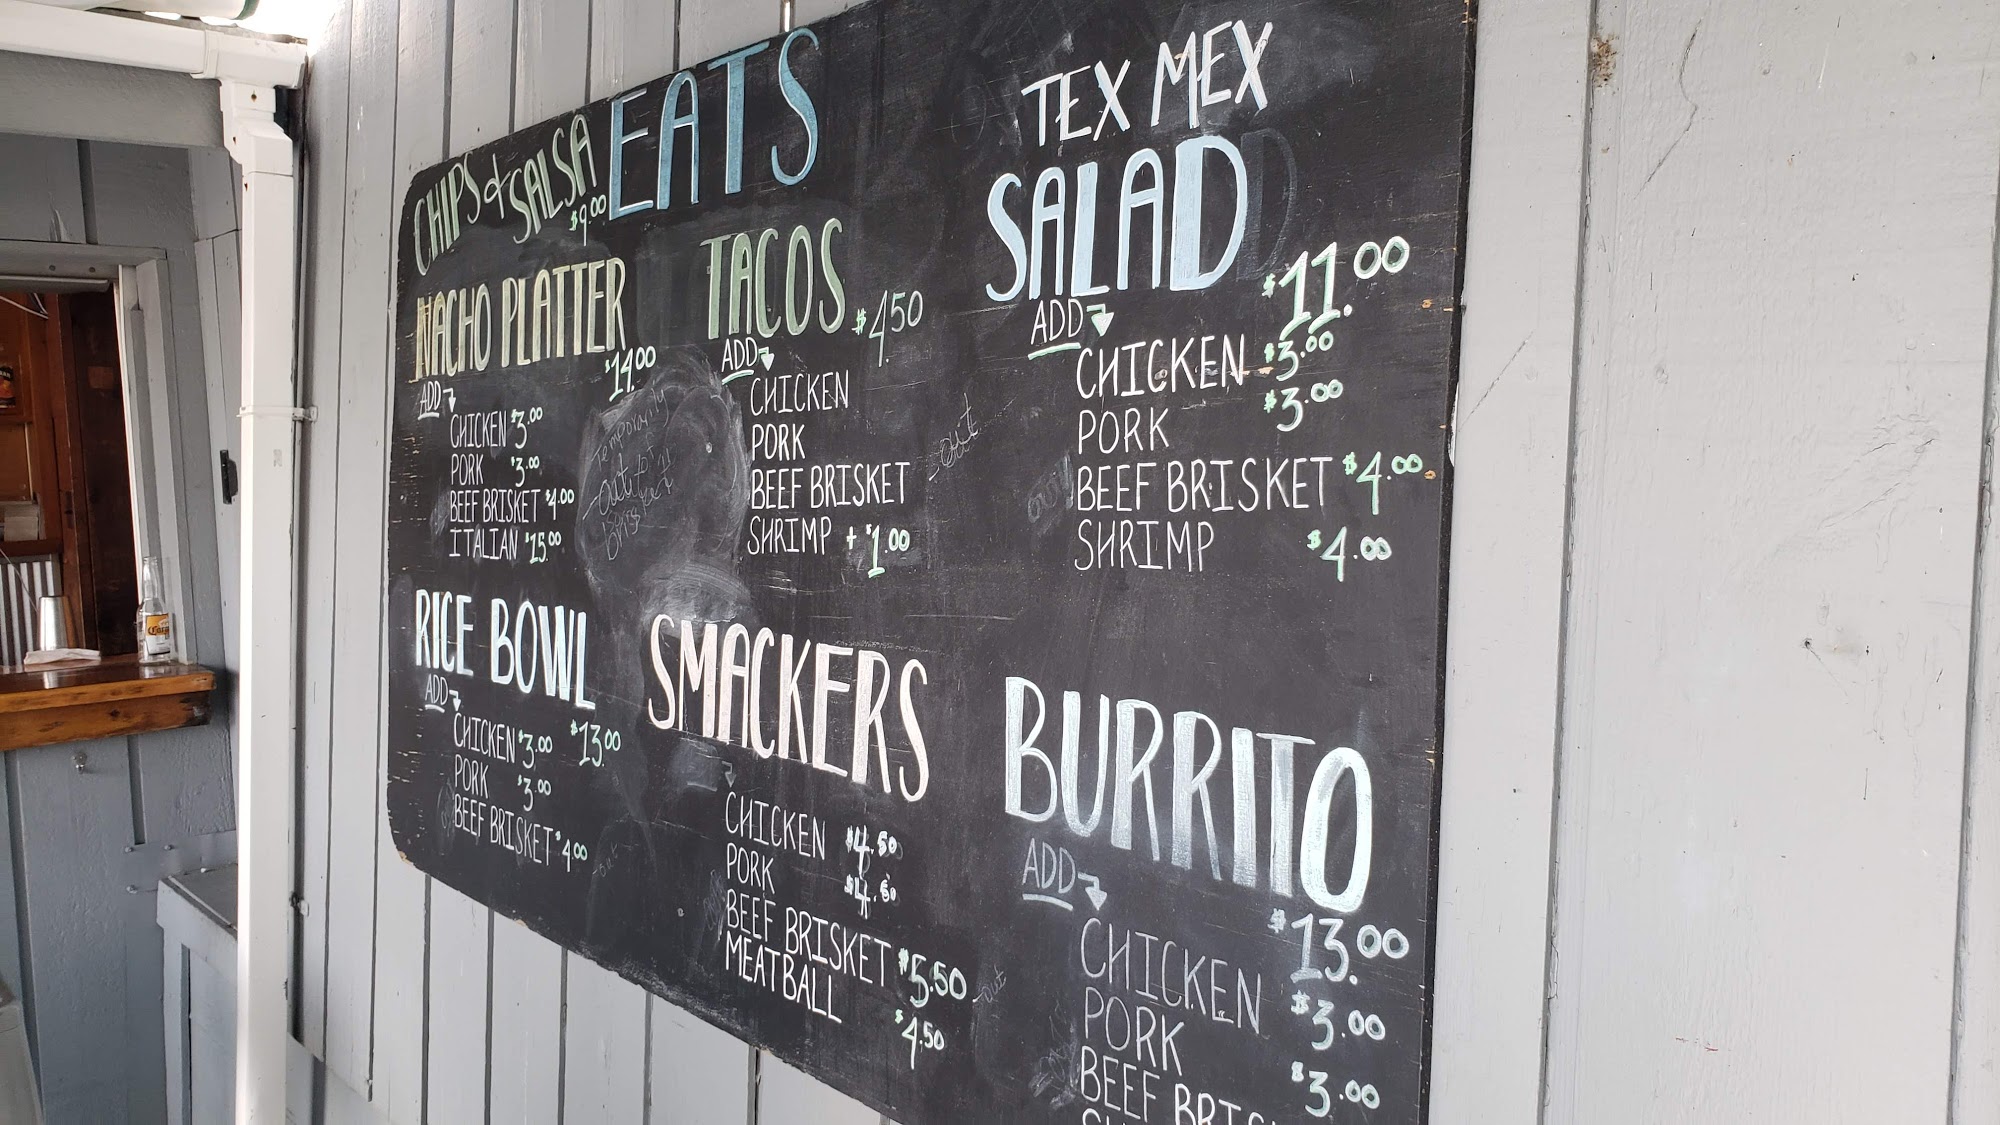 EATS
CHIPS & SALSA
$9.00
NACHO PLATTER
$14.00
ADD
CHICKEN $3.00
PORK $3.00
BEEF BRISKET $4.00
ITALIAN $15.00
Temporarily
out of
brisket
TACOS
$4.50
ADD
CHICKEN
PORK
BEEF BRISKET
out
SHRIMP + $1.00
TEX MEX
SALAD
$11.00
ADD
CHICKEN $3.00
PORK $3.00
BEEF BRISKET $4.00
SHRIMP $4.00
RICE BOWL
$13.00
ADD
CHICKEN $3.00
PORK $3.00
BEEF BRISKET $4.00
out
SMACKERS
CHICKEN $4.50
PORK $4.50
BEEF BRISKET $5.50
out
MEATBALL $4.50
BURRITO
$13.00
ADD
CHICKEN $3.00
PORK $3.00
BEEF
Corona